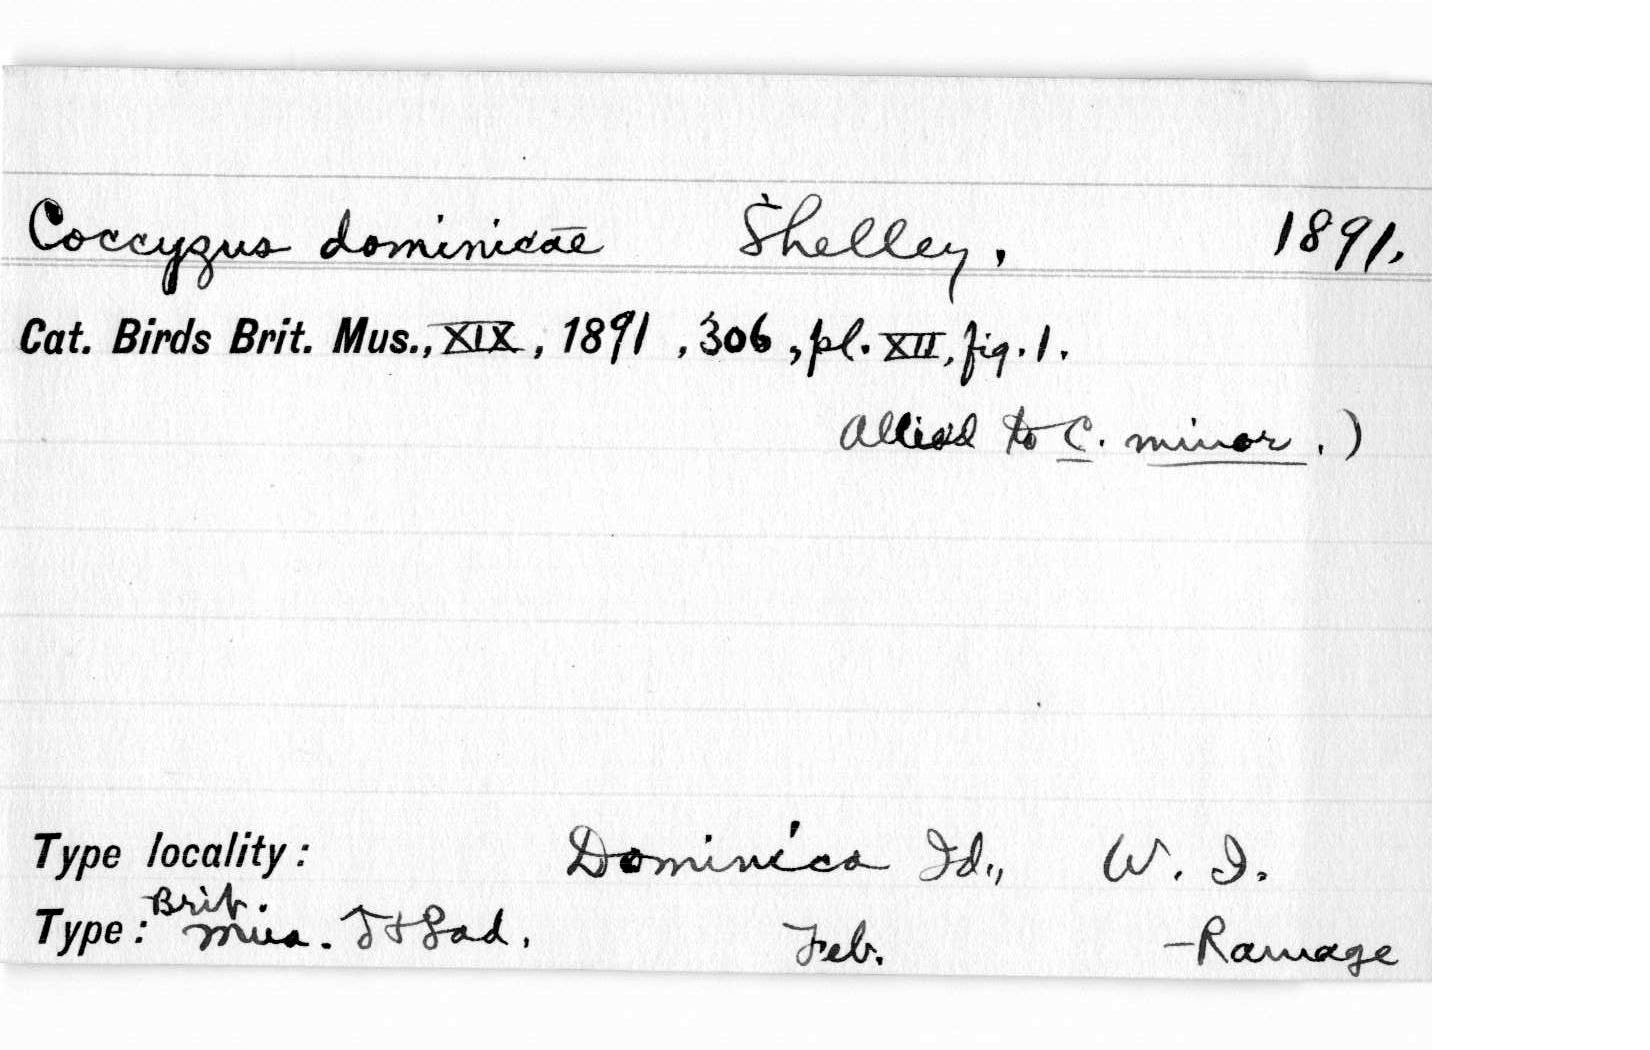 Coccyzus dominicae Shelley, 1891.
Cat. Birds Brit. Mus., XIX, 1891, 306, pl. XII, fig. 1.
Allied to C. minor.)
Type locality: Dominica Id., W. I.
Type: Brit. Mus. ♂ + ♀ ad. Feb. —Ramage